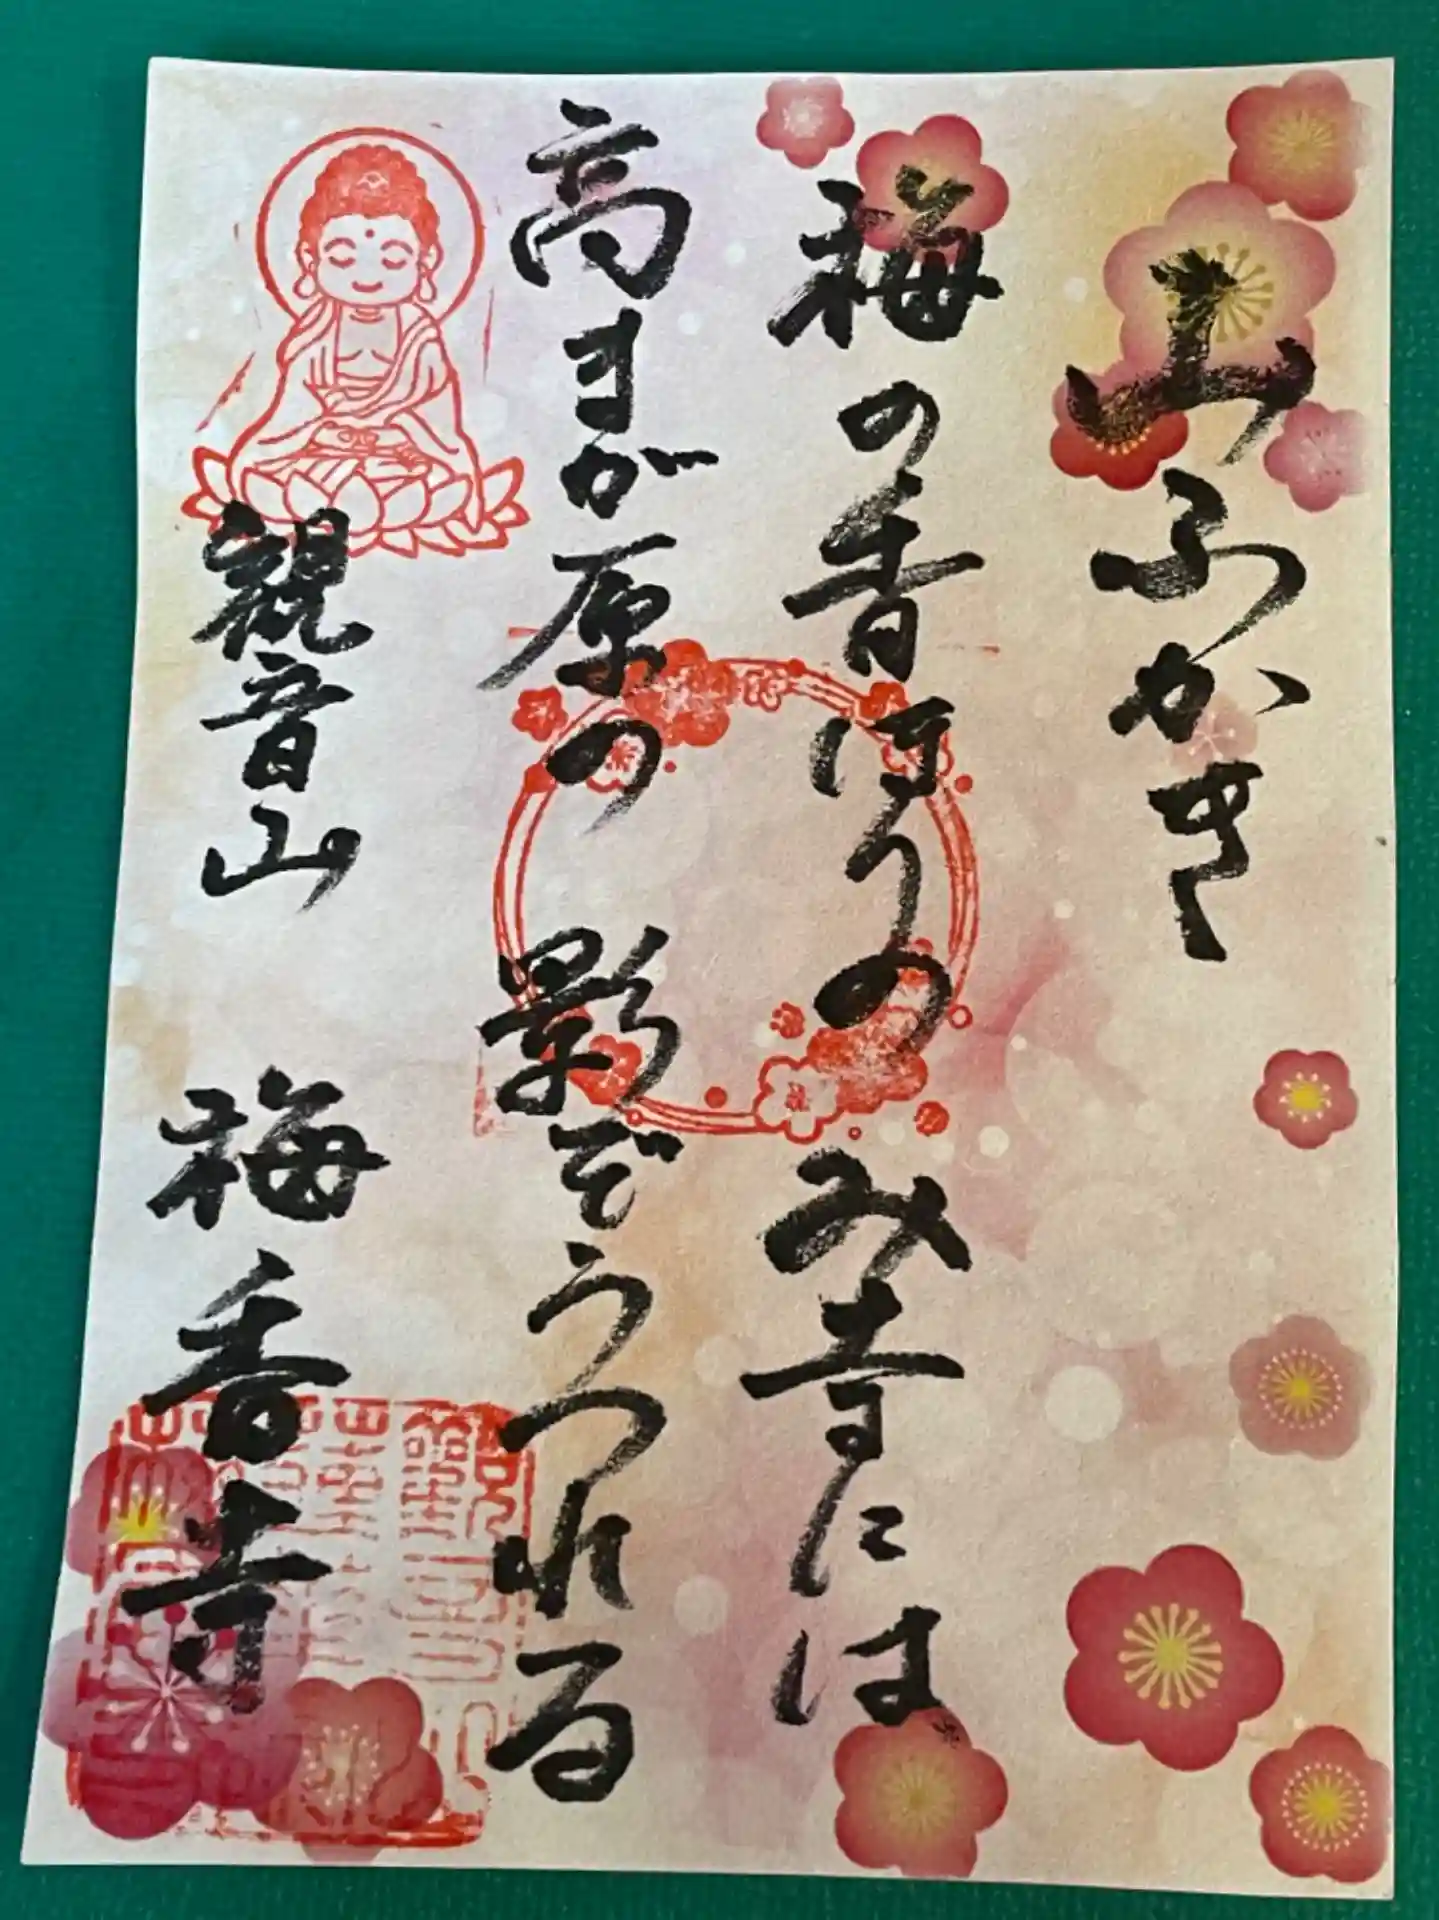 山ふかき
梅の香ほりのみ寺には
高まが原の影ぞうつれる
観音山 梅香寺